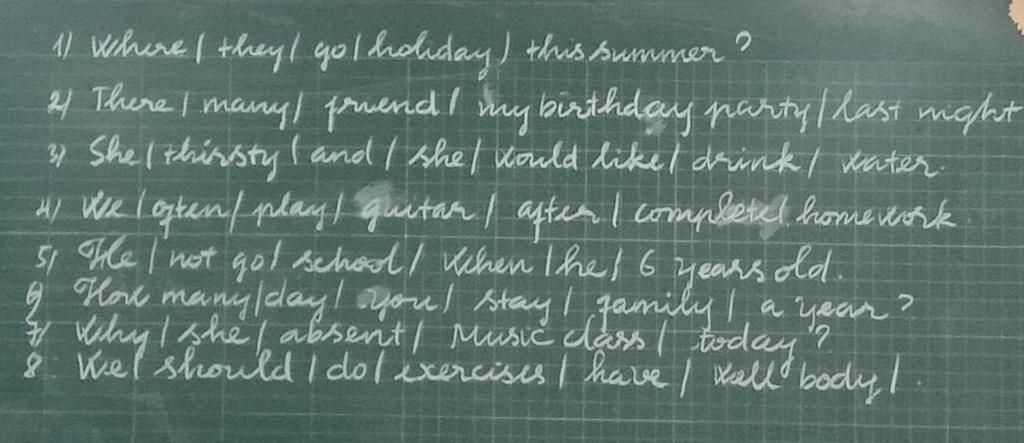 1) Where / they / go / holiday / this summer ?
2) There / many / friend / my birthday party / last night
3) She / thirsty / and / she / would like / drink / water.
4) We / often / play / guitar / after / complete / homework
5) He / not go / school / when / he / 6 years old.
6 How many / day / you / stay / family / a year ?
7) Why / she / absent / Music class / today ?
8. We / should / do / exercises / have / well body / .